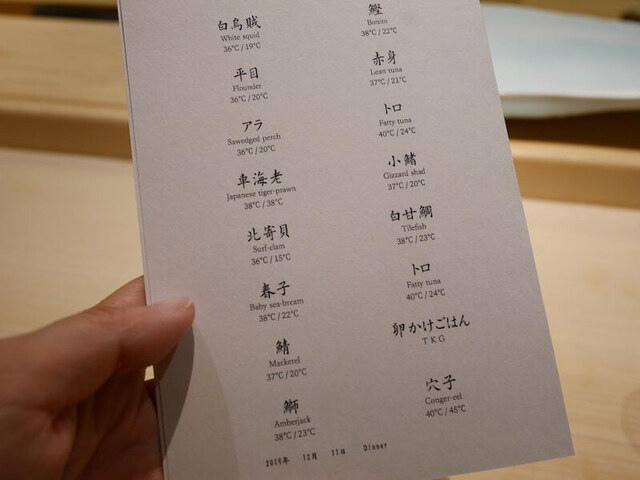 白烏賊
White squid
36℃ / 19℃
平目
Flounder
36℃ / 20℃
アラ
Sawedged perch
36℃ / 20℃
車海老
Japanese tiger-prawn
38℃ / 38℃
北寄貝
Surf-clam
36℃ / 15℃
春子
Baby sea-bream
38℃ / 22℃
鯖
Mackerel
37℃ / 20℃
鰤
Amberjack
38℃ / 23℃
鰹
Bonito
38℃ / 22℃
赤身
Lean tuna
37℃ / 21℃
トロ
Fatty tuna
40℃ / 24℃
小鰭
Gizzard shad
37℃ / 20℃
白甘鯛
Tilefish
38℃ / 23℃
トロ
Fatty tuna
40℃ / 24℃
卵かけごはん
TKG
穴子
Conger-eel
40℃ / 45℃
2019年 12月 11日 Dinner